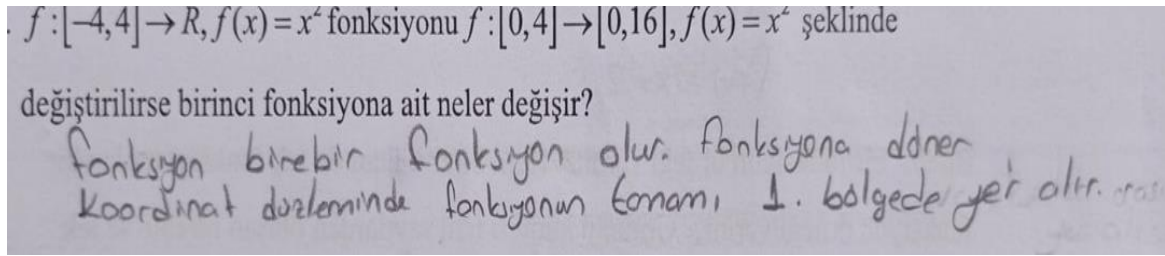 . f:[-4,4]→R, f(x)=x² fonksiyonu f:[0,4]→[0,16], f(x)=x² şeklinde
değiştirilirse birinci fonksiyona ait neler değişir?
fonksyon birebir fonksiyon olur. fonksiyona döner
Koordinat düzleminde fonksiyonun tamamı 1. bölgede yer alır.